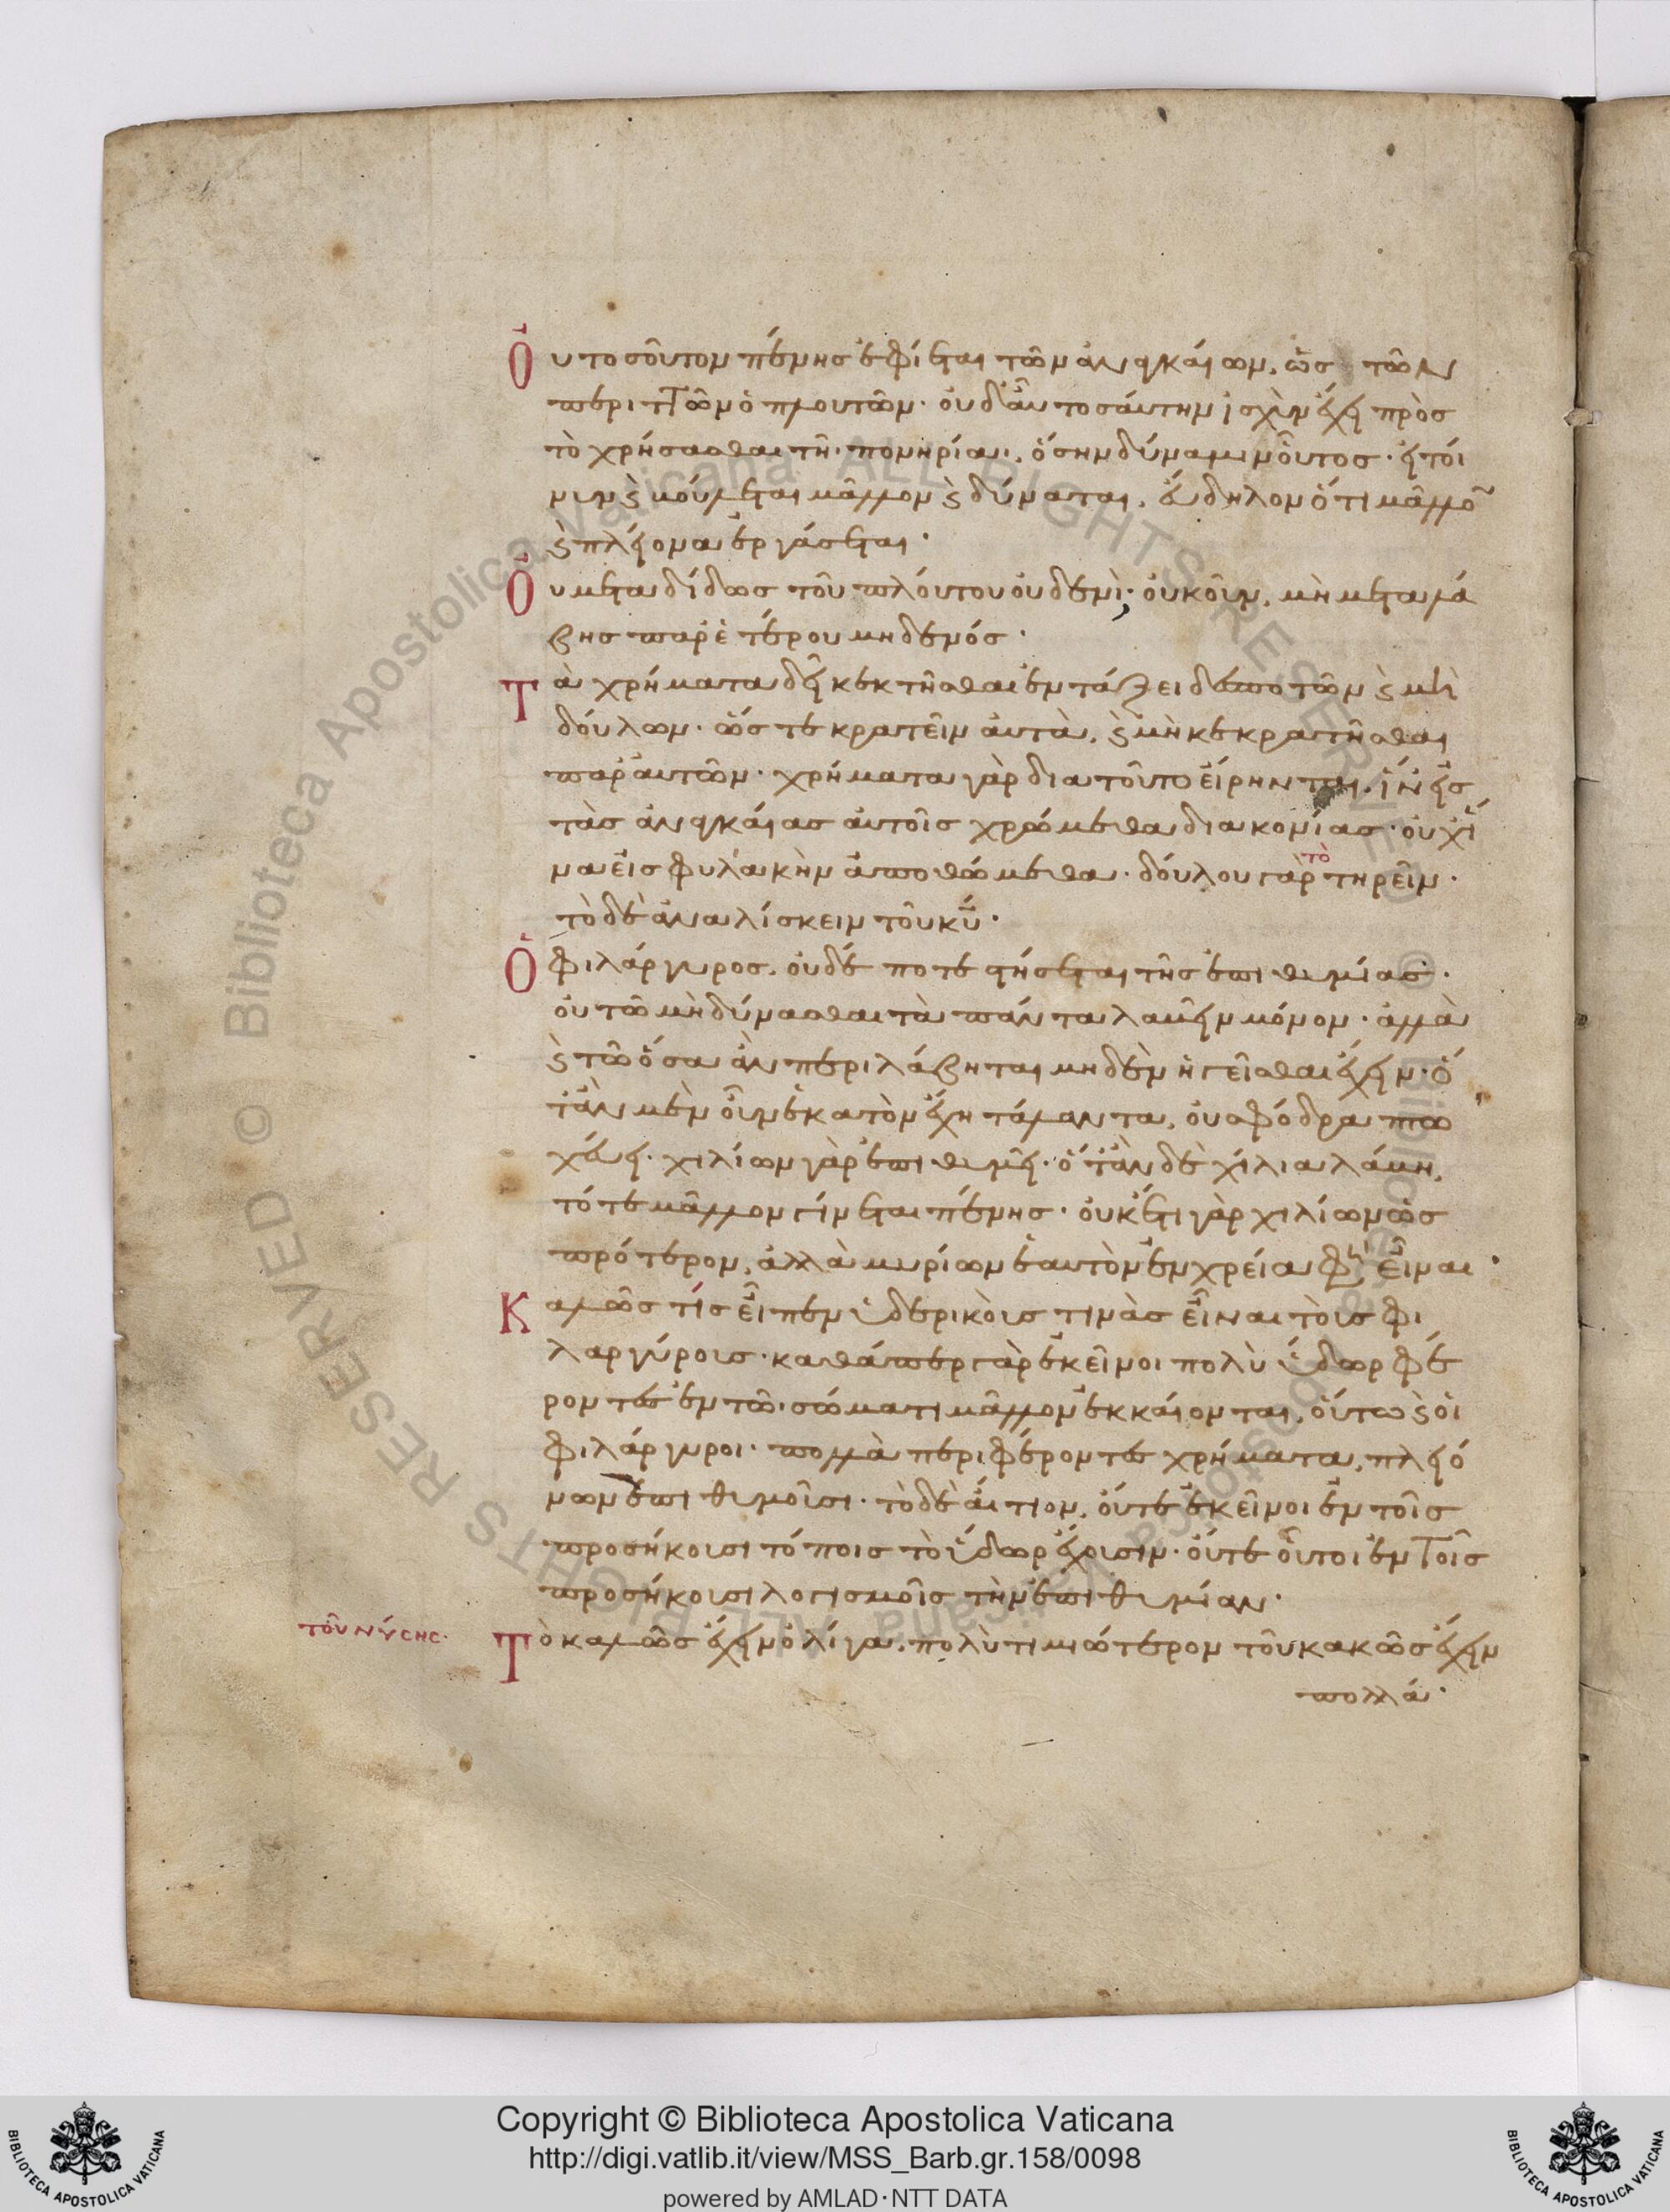 Οὐ τοσοῦτον πένης ἐφίεται τῶν ἀναγκαίων, ὡς τῶν
περιττῶν ὁ πλουτῶν· οὐδ' ἂν τοσαύτην ἰσχὺν ἔχει πρὸς
τὸ χρήσασθαι τῆι πονηρίαι, ὅσην δύναμιν οὗτος· εἰ τοί
νυν ϗ βούλεται μᾶλλον ϗ δύναται, εὔδηλον ὅτι μᾶλλο
ϗ πλείονα ἐργάσεται·
Οὐ μεταδίδως τοῦ πλούτου οὐδενὶ· οὐκοῦν, μὴ μεταλά
βης παρ' ἑτέρου μηδενός·
Τὰ χρήματα δεῖ κεκτῆσθαι ἐν τάξει δεσποτῶν ϗ μὴ
δούλων· ὥστε κρατεῖν αὐτὰ, ϗ μὴ κεκρατῆσθαι
παρ' αὐτῶν· χρήματα γὰρ δια τοῦτο εἴρηνται, ἵν' εἰς
τὰς ἀναγκαίας αὐτοῖς χρώμεθα διακονίας· οὐχ ἵ
να εἰς φυλακὴν ἀποθώμεθα· δούλου γὰρ τὸ τηρεῖν·
τὸ δὲ ἀναλίσκειν τοῦ κυ·
Ὁ φιλάργυρος, οὐδέποτε στήσεται τῆς ἐπιθυμίας·
οὐ τῶ μὴ δύνασθαι τὰ πάντα λαβεῖν μόνον· ἀλλὰ
ϗ τῶ ὅσα ἂν περιλάβηται μηδὲν ἡγεῖσθαι ἔχειν· ὅ
τἂν μὲν οὖν ἑκατὸν ἔχη τάλαντα, οὐ σφόδρα πτω
χεύει· χιλίων γὰρ ἐπιθυμεῖ· ὅτἂν δὲ χίλια λάβη,
τότε μᾶλλον γίνεται πένης· οὐκέτι γὰρ χιλίων ὡς
πρότερον, ἀλλὰ μυρίων ἑαυτὸν ἐν χρεία φη εἶναι·
Καλῶς τίς εἶπεν ὑδερικοὺς τινὰς εἶναι τοὺς φι
λαργύρους· καθάπερ γὰρ ἐκεῖνοι πολὺ ὕδωρ φέ
ροντες ἐν τῶι σώματι μᾶλλον ἐκκαίονται, οὕτω ϗ οἱ
φιλάργυροι· πολλὰ περιφέροντες χρήματα, πλειό
νων ἐπιθυμοῦσι· τὸ δὲ αἴτιον, οὔτε ἐκεῖνοι ἐν τοῖς
προσήκουσι τόποις τὸ ὕδωρ ἔχουσιν· οὔτε οὗτοι ἐν τοῖς
προσήκουσι λογισμοῖς τὴν ἐπιθυμίαν·
τοῦ νύσης·
Τὸ καλῶς ἔχειν ὀλίγα, πολὺ τιμιώτερον τοῦ κακῶς ἔχειν
πολλά·
Copyright © Biblioteca Apostolica Vaticana
http://digi.vatlib.it/view/MSS_Barb.gr.158/0098
powered by AMLAD·NTT DATA
BIBLIOTECA APOSTOLICA VATICANA
BIBLIOTECA APOSTOLICA VATICANA